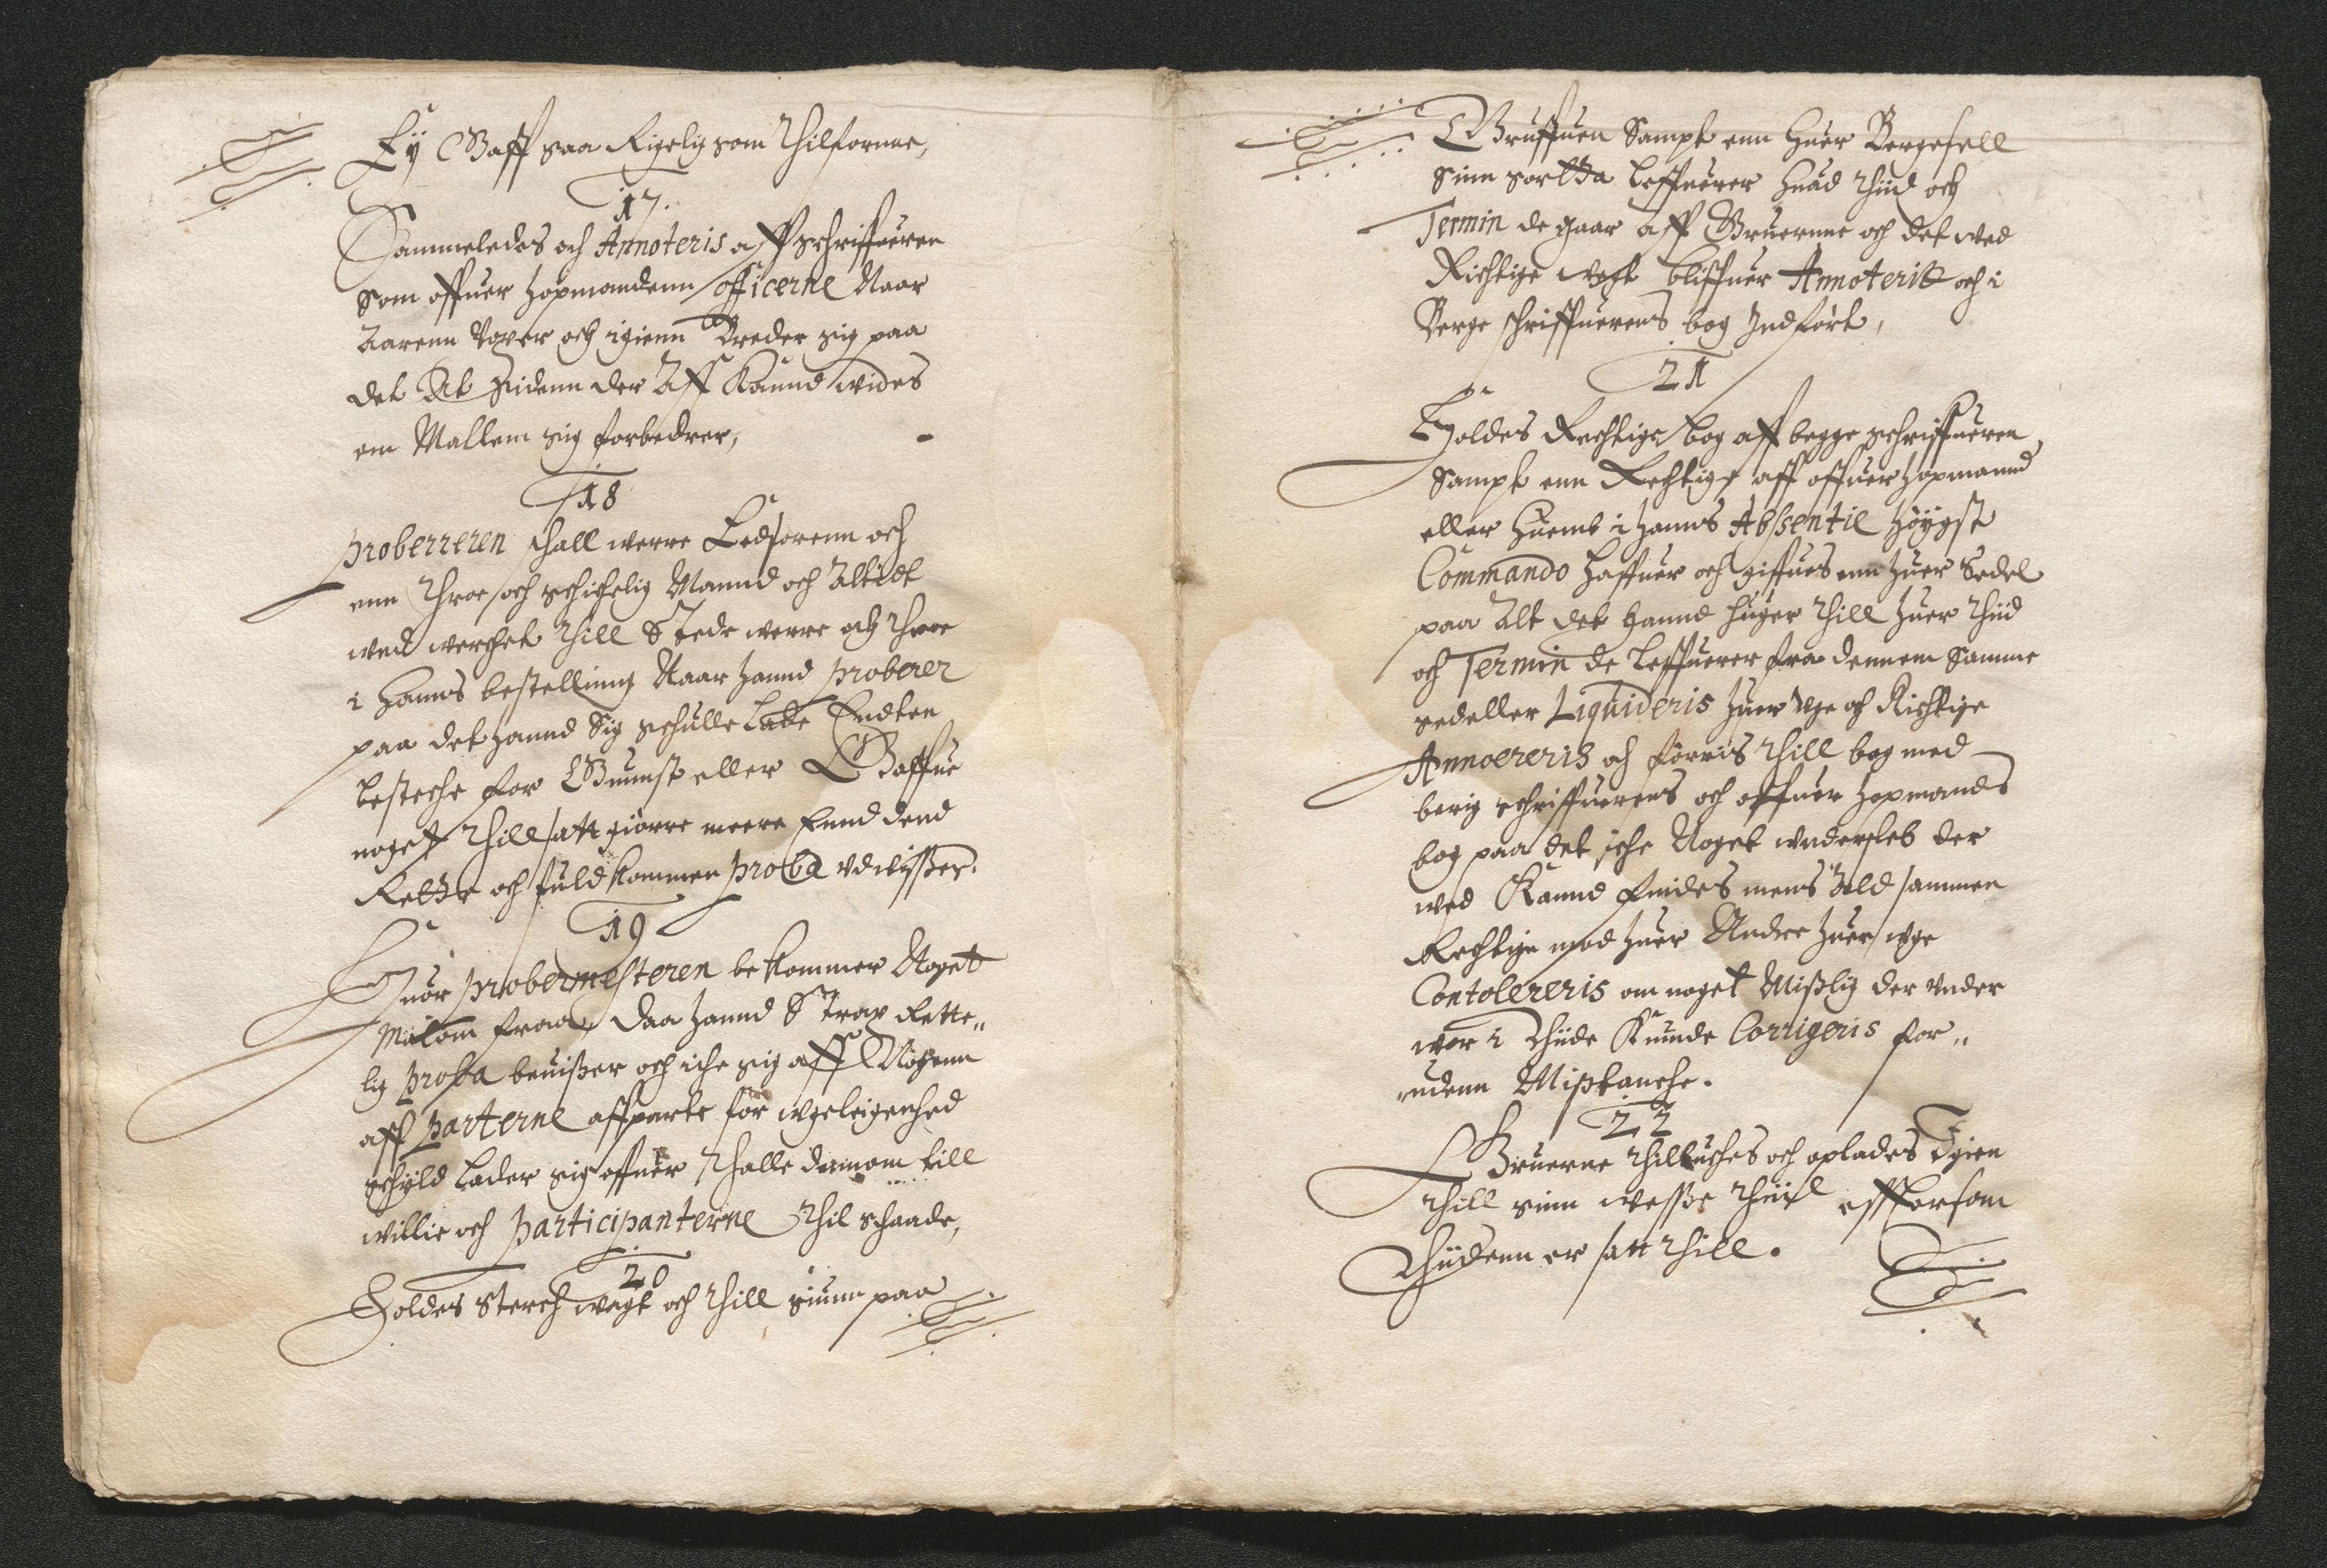 Ey Gaff saa Rigelig som thilfornne,
17.
Sammeledes och Annoteris aff schriffueren
som offuer hopmandenn officerne Naar
Aarenn voxer och igienn Breder sig paa
det At sidenn der Aff Kannd vides
om Mallem sig forbedrer,
18
proberreren schall werre Eedsorenn och
enn throe och schichelig Mannd och Altidt
wed werchet thill Stede werre och throe
i hanns bestelling Naar hannd proberer
paa det hannd Sig schulle Lade Endten
besteche for Gunnst eller Gaffue
noget thill att giørre meere Ennd dend
Rette och fuldkommen proba vdwisser.
19
Huor probermesteren bekommer Noget
Malom fraa, daa hannd Strax Rette„
lig proba beuisser och iche sig aff Nogenn
aff parterne affparte for wgeleigenhed
schyld Lader sig offuer thalle dennom till
willie och participanterne thil schaade,
20
Holdes sterch wegt och thill siunn paa
Gruffuen Sampt enn huer Bergesell
sinn sortta leffuerer huad thiid och
Termin de gaar aff Gruernne och det wed
Richtige wegt bliffuer Annoterit och i
Berge schriffuerens bog Indført,
21
Holdes Rechtige bog aff begge schriffueren
Sampt enn Rechtige aff offuer hopmannd
eller huemb i hanns Absentie høygst
Commando haffuer och giffues enn huer Sedel
paa Alt det hannd huger thill huer thiid
och Termin de leffuerer fra dennem Samme
sedeller Liquideris huer vge och Richtige
Annoereris och førris thill bog med
berig schriffuerens och offuer hopmands
bog paa det iche Noget wnderfleb der
wed Kannd findes mens Alld sammen
Rechtige mod huer Andre huer wge
Contolereris om noget Misslig der vnder
wor i thiide Kunde Corrigeris for„
udenn Misstanche.
22
Gruerne thilluches och oplades Igien
thill sinn wesse thiid effttersom
thiidenn er satt thill.